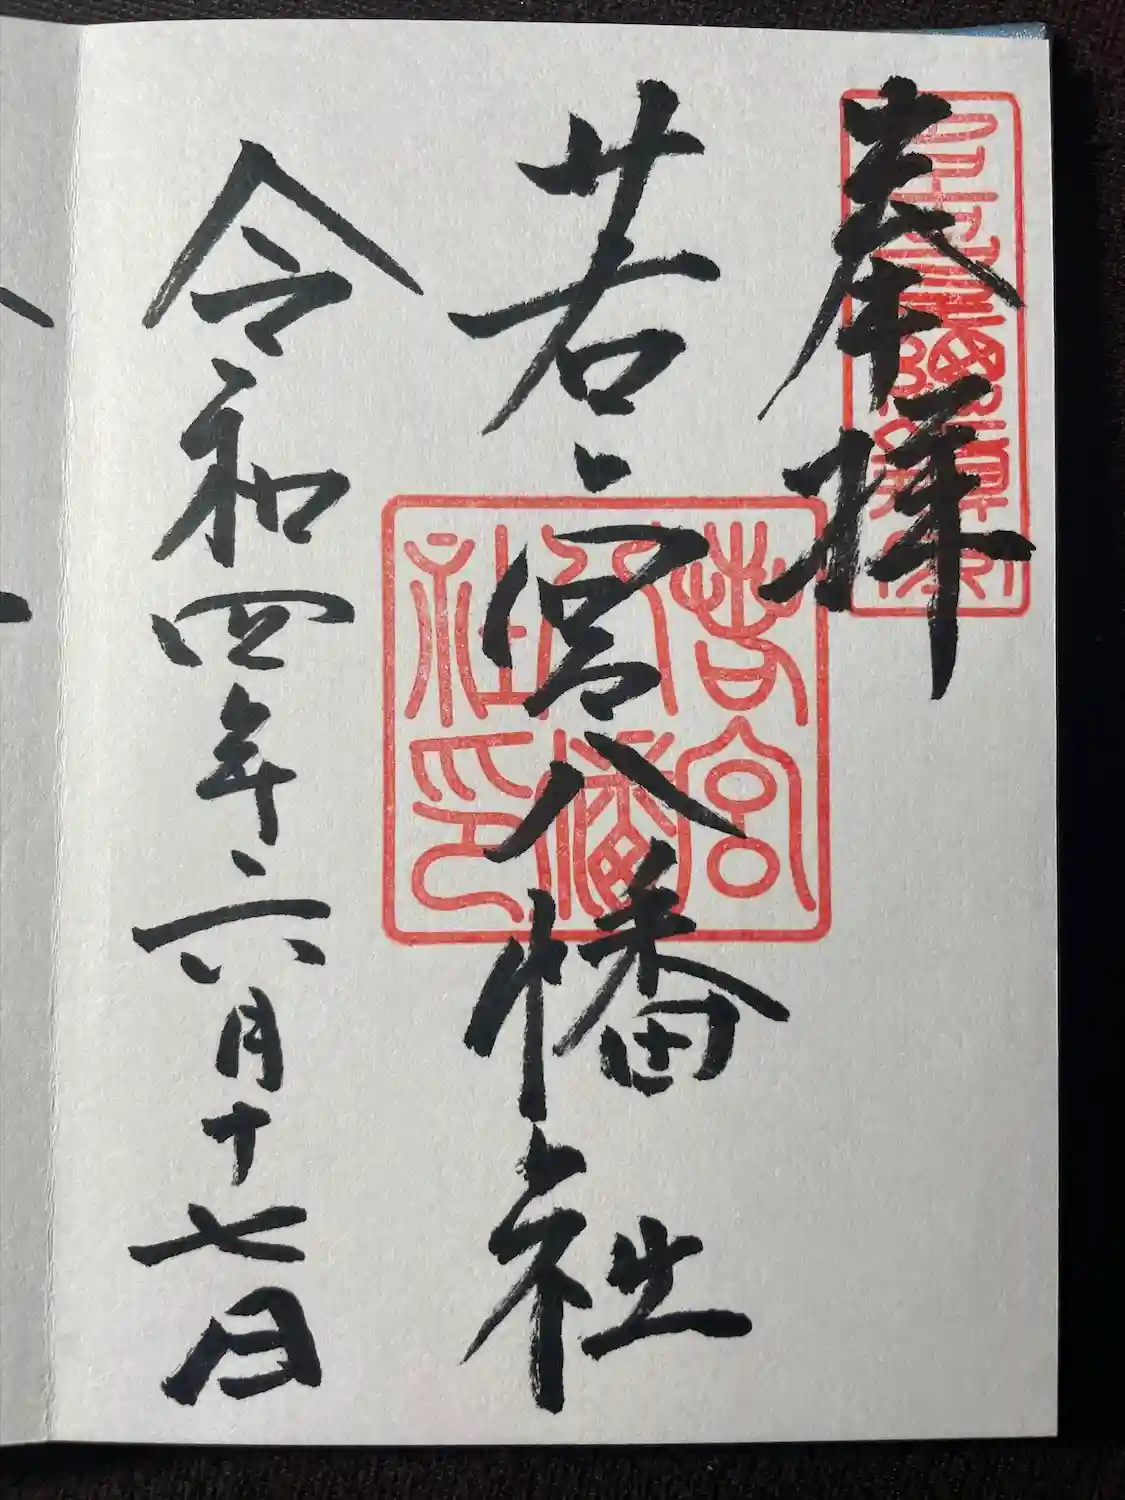 奉拝
若宮八幡社
若宮八幡社印
令和四年六月十七日